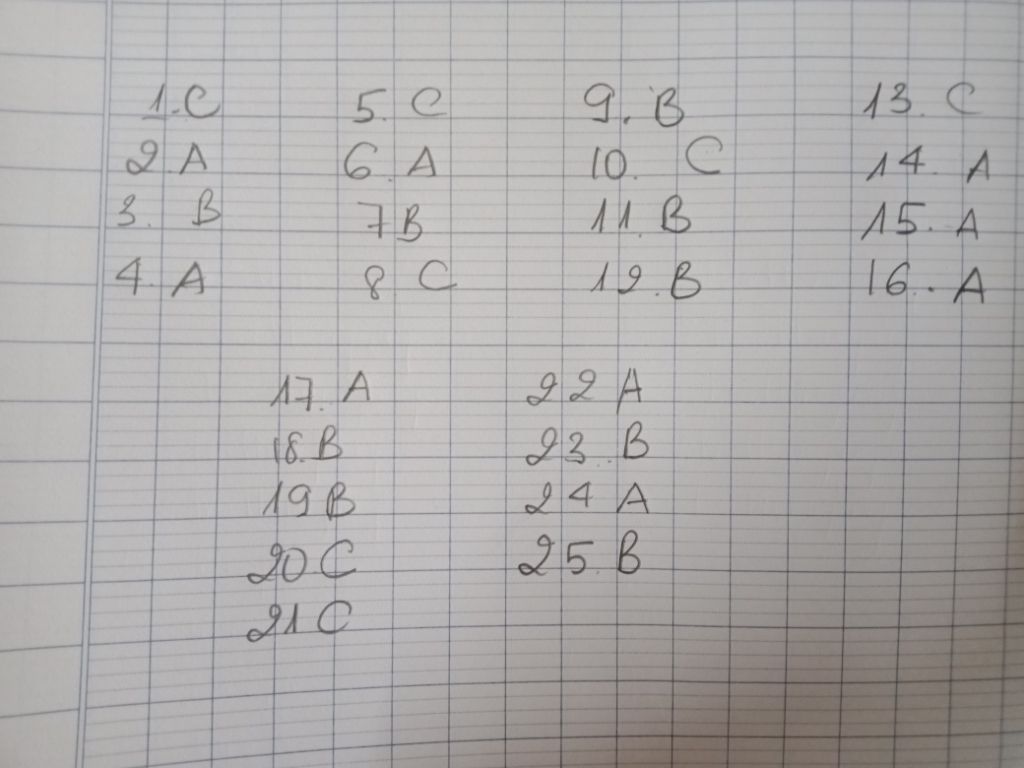 1. C 5. C 9. B 13. C
2. A 6. A 10. C 14. A
3. B 7 B 11. B 15. A
4. A 8 C 12. B 16. A
17. A 22 A
18. B 23. B
19 B 24 A
20 C 25. B
21 C